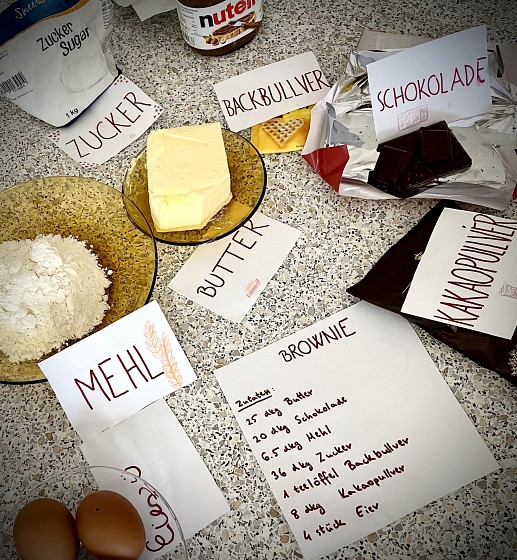 Zucker
Sugar
1 kg
nutell
ZUCKER
BACKBULLVER
SCHOKOLADE
BUTTER
KAKAOPULVER
MEHL
BROWNIE
Zutaten:
25 dkg Butter
20 dkg Schokolade
6.5 dkg Mehl
36 dkg Zucker
1 teelöffel Backbullver
8 dkg Kakaopulver
4 stück Eier